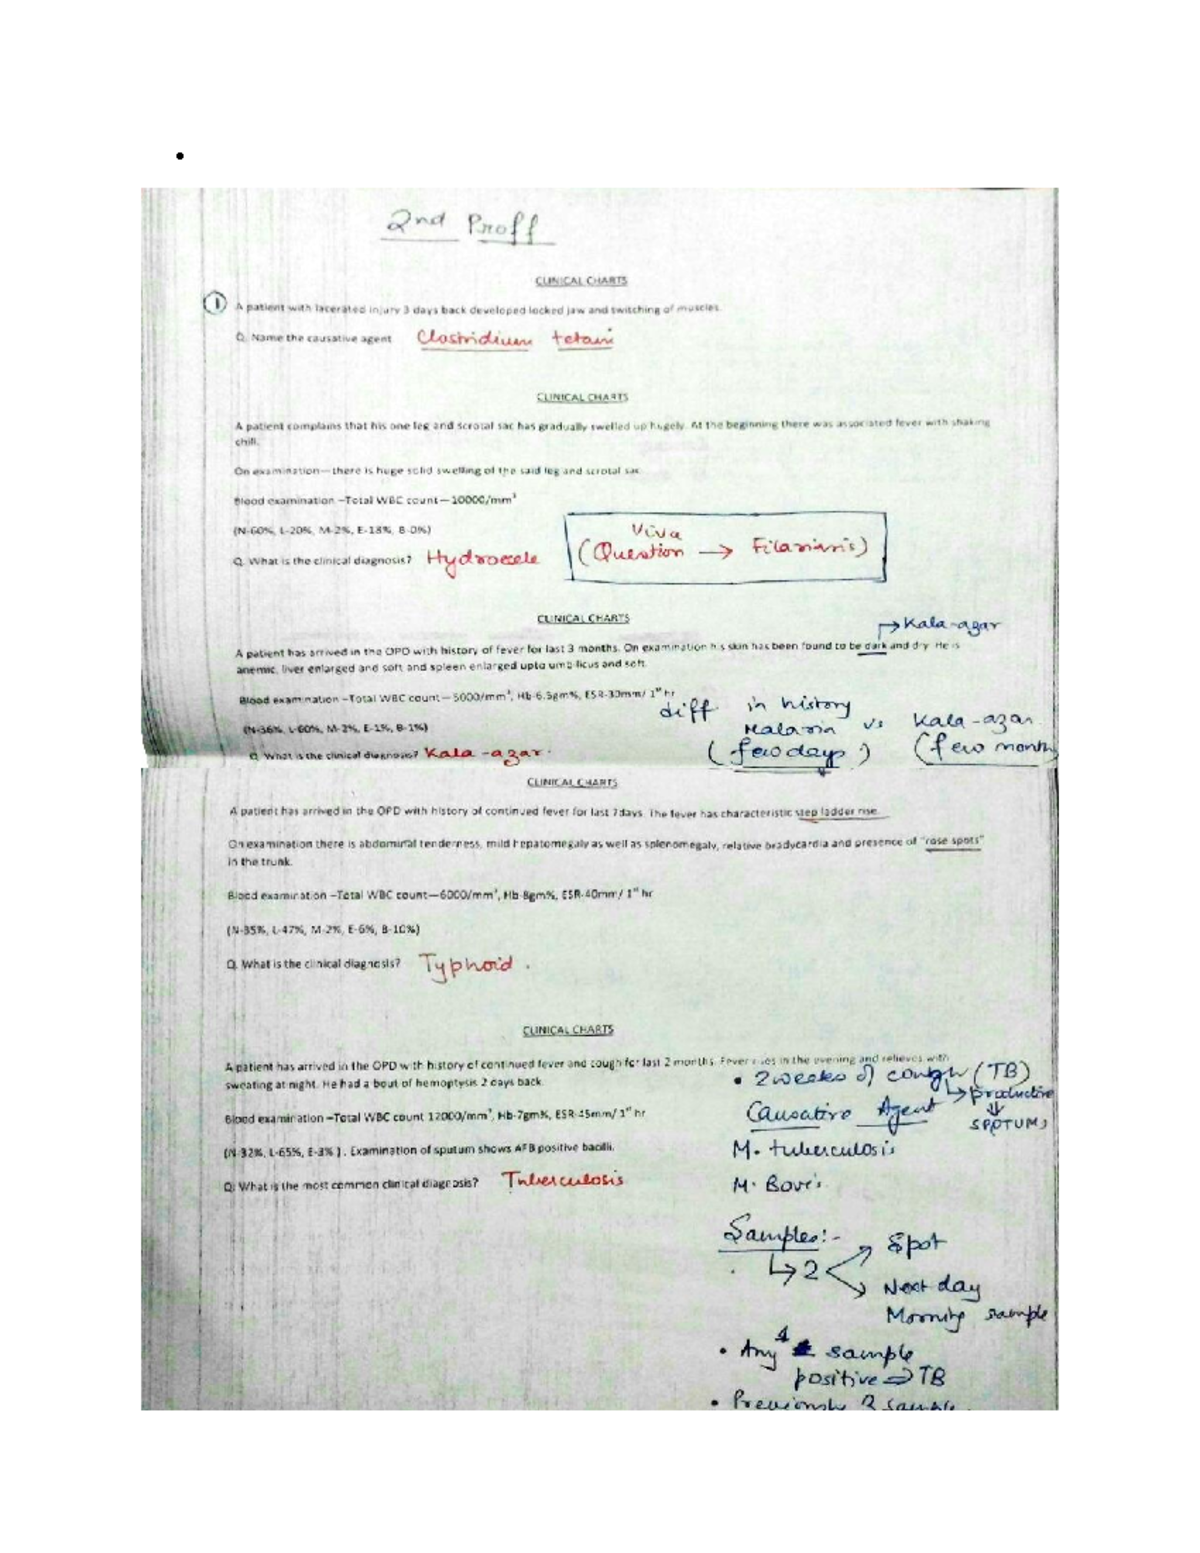 2nd Proff
CLINICAL CHARTS
1 A patient with lacerated injury 3 days back developed locked jaw and switching of muscles.
Q. Name the causative agent Clostridium tetani
CLINICAL CHARTS
A patient complains that his one leg and scrotal sac has gradually swelled up hugely. At the beginning there was associated fever with shaking
chill.
On examination—there is huge solid swelling of the said leg and scrotal sac
Blood examination –Total WBC count—10000/mm³
(N-60%, L-20%, M-2%, E-18%, B-0%)
Viva
Q. What is the clinical diagnosis? Hydrocele (Question → Filariasis)
CLINICAL CHARTS
→ Kala-azar
A patient has arrived in the OPD with history of fever for last 3 months. On examination his skin has been found to be dark and dry. He is
anemic, liver enlarged and soft and spleen enlarged upto umbilicus and soft.
Blood examination –Total WBC count—5000/mm³, Hb-6.5gm%, ESR-30mm/ 1st hr
diff in history
(N-36%, L-60%, M-2%, E-1%, B-1%)
Malaria vs Kala-azar
(few days) (few month
Q. What is the clinical diagnosis? Kala-azar.
CLINICAL CHARTS
A patient has arrived in the OPD with history of continued fever for last 7days. The fever has characteristic step ladder rise.
On examination there is abdominal tenderness, mild hepatomegaly as well as splenomegaly, relative bradycardia and presence of "rose spots"
in the trunk.
Blood examination –Total WBC count—6000/mm³, Hb-8gm%, ESR-40mm/ 1st hr
(N-35%, L-47%, M-2%, E-6%, B-10%)
Q. What is the clinical diagnosis? Typhoid.
CLINICAL CHARTS
A patient has arrived in the OPD with history of continued fever and cough for last 2 months. Fever rises in the evening and relieves with
sweating at night. He had a bout of hemoptysis 2 days back.
• 2 weeks of cough (TB)
↳ productive
↓
SPUTUM)
Blood examination –Total WBC count 12000/mm³, Hb-7gm%, ESR-45mm/ 1st hr
Causative Agent
(N-32%, L-65%, E-3% ). Examination of sputum shows AFB positive bacilli.
M. tuberculosis
Q: What is the most common clinical diagnosis? Tuberculosis
M. Bovis
Samples:-
↳ 2
Spot
Next day
Morning sample
• Any 1 sample
positive ⇒ TB
• Previously 2 sample